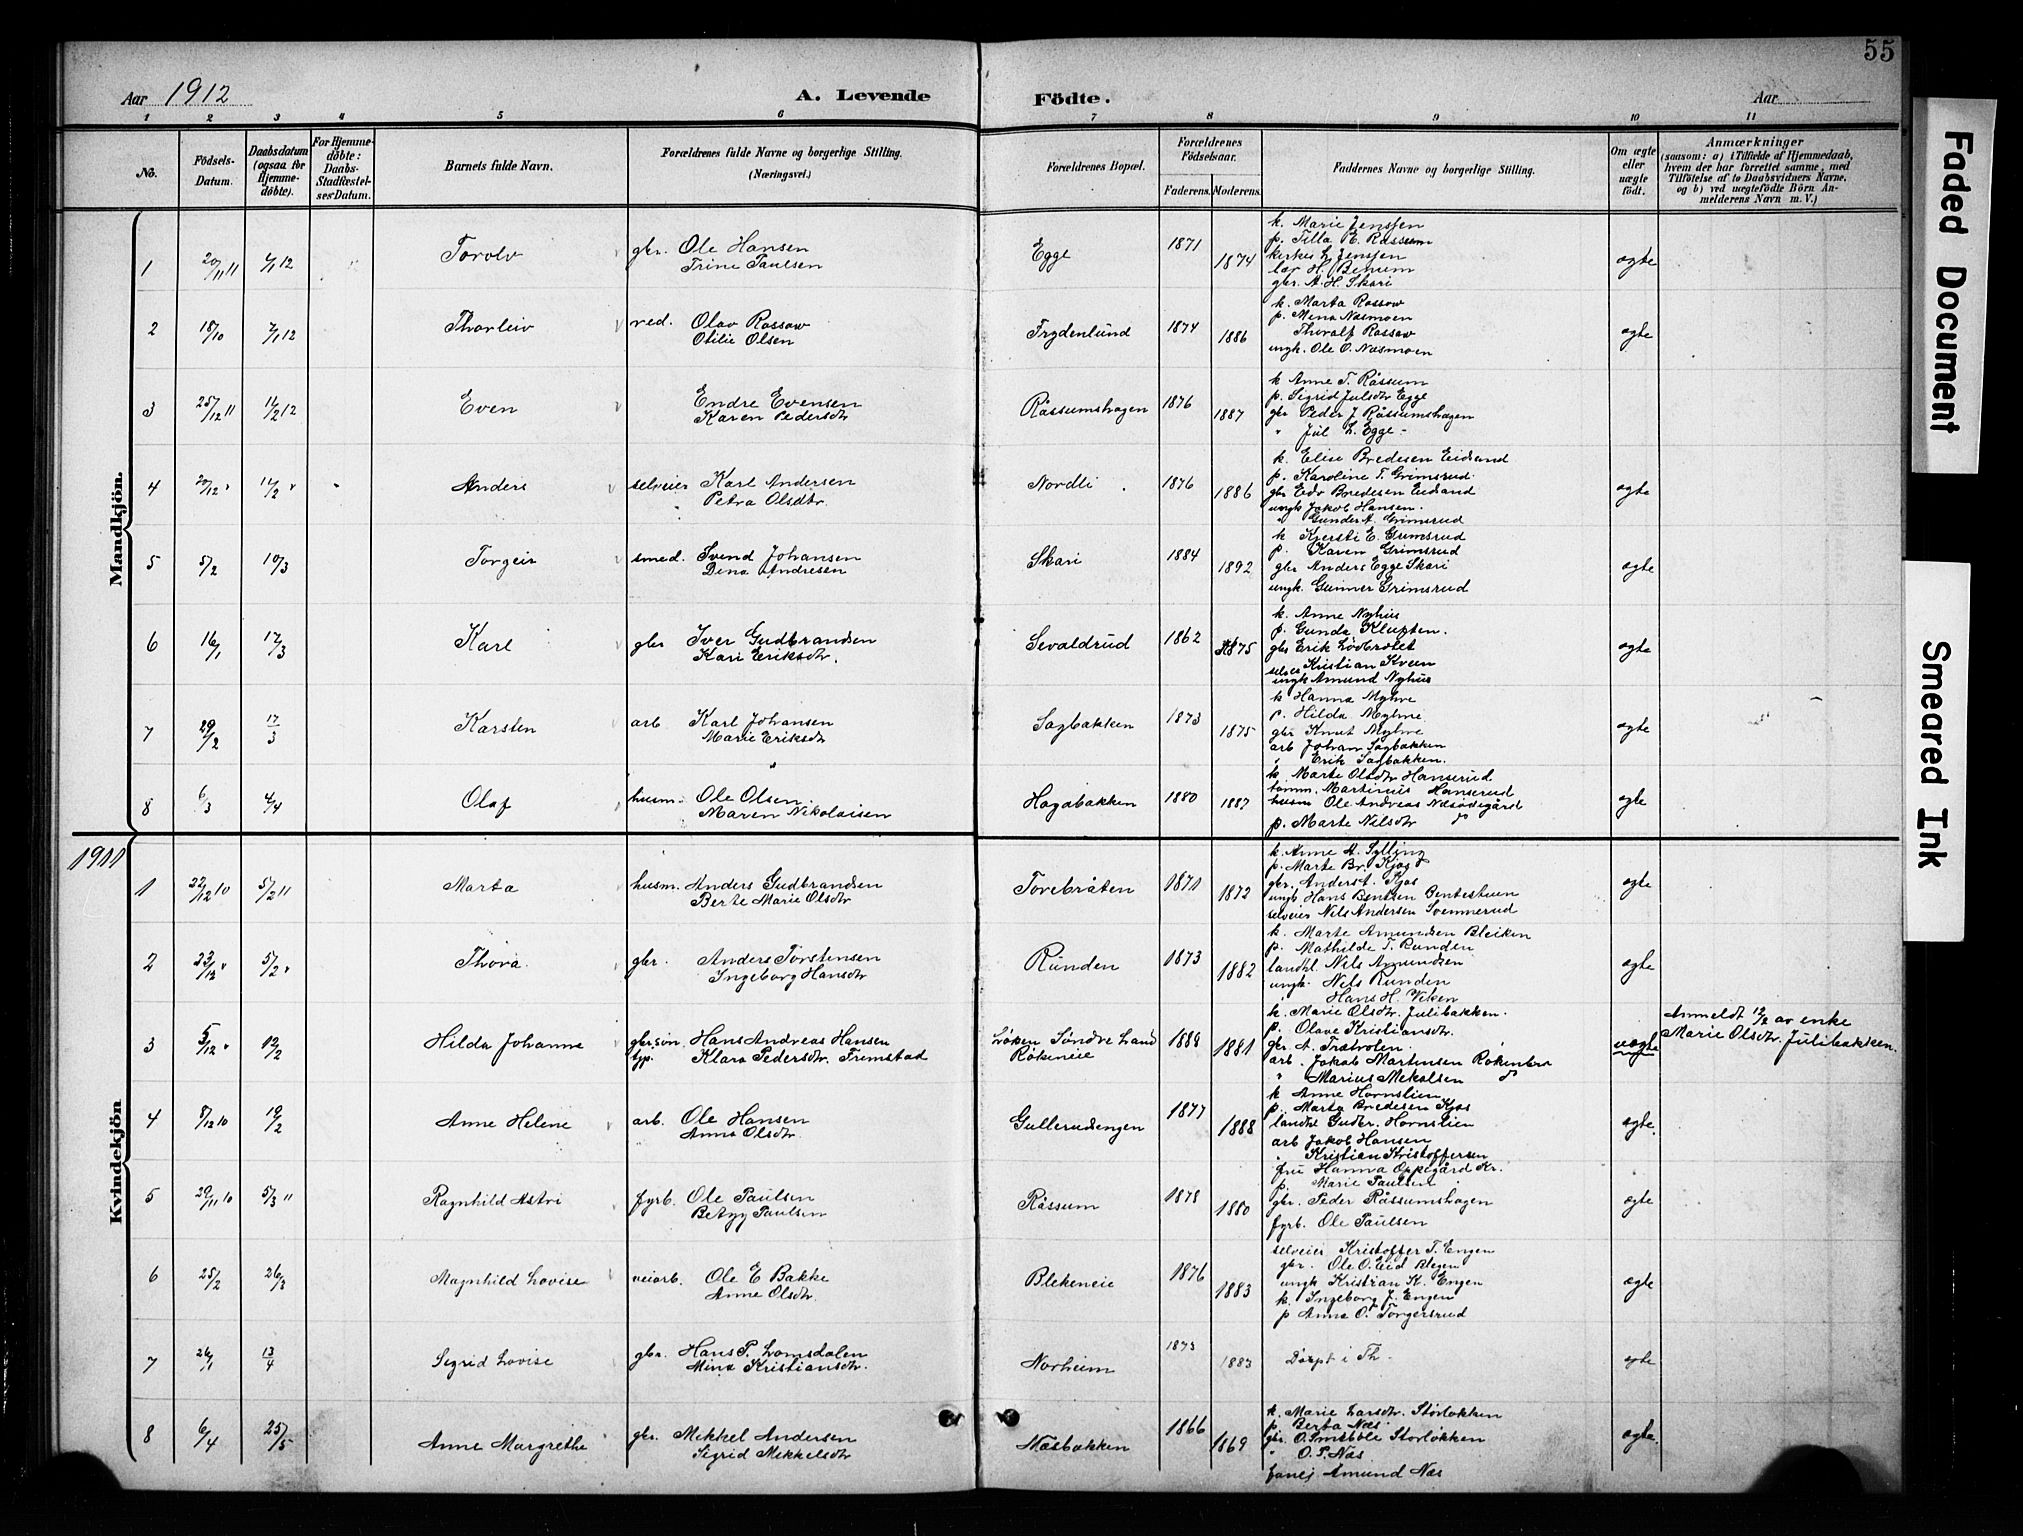 55
Aar 1912
A. Levende
Födte.
Aar
1 2 3 4 5 6 7 8 9 10 11
No.
Födsels-Datum.
Daabsdatum (ogsaa for Hjemme-döbte).
For Hjemme-döbte: Daabs-Stadfæstel-ses Datum.
Barnets fulde Navn.
Forældrenes fulde Navne og borgerlige Stilling.
(Næringsvei.)
Forældrenes Bopæl.
Forældrenes Födselsaar.
Faderens. Moderens.
Faddernes Navne og borgerlige Stilling.
Om ægte eller uægte födt.
Anmærkninger
(saasom: a) i Tilfælde af Hjemmedaab,
hvem der har forrettet samme, med
Tilföielse af to Daabsvidners Navne,
og b) ved uægtefödte Börn An-
melderens Navn m. V.)
Mandkjön.
1 20/11 11 7/1 12 Torolv gbr. Ole Hansen
Trine Paulsen
Egge 1871 1874
k. Marie Jenssen
p. Tilla E. Røssum
kirkes. L. Jenssen
lær H. Benum
gbr. A. H. Skari
ægte
2 18/10 7/1 12 Thorleiv red. Olav Rossow
Otilie Olsen
Frydenlund 1874 1886
k. Marta Rossow
p. Mena Næsmoen
Thoralf Rossow
ungk. Ole O. Næsmoen
ægte
3 25/12 11 11/2 12 Even Endre Evensen
Karen Pedersdtr
Røssumshagen 1876 1887
k Anne T. Røssum
p. Sigrid Julsdtr Egge
gbr Peder J Røssumshagen
" Jul L. Egge
ægte
4 20/12 " 11/2 " Anders selveier Karl Andersen
Petra Olsdtr.
Nordli 1876 1886
k. Elise Bredesen Eidsand
p. Karoline T. Grimsrud
gbr Edv Bredesen Eidsand
ungk Jakob Hansen.
" Gunder A. Grimsrud
ægte
5 5/2 10/3 Torgeir smed. Svend Johansen
Dina Andresen
Skari 1884 1892
k Kjersti E. Grimsrud
p. Karen Grimsrud
gbr Anders Egge Skari
ungk. Gunner Grimsrud
ægte
6 16/1 17/3 Karl gbr Iver Gudbrandsen
Kari Eriksdtr.
Sevaldrud 1862 1875
k. Anne Nyhus
p. Gunda Kluften.
gbr Erik Lødbrøtet
selvei Kristian Kveen
ungk Amund Nyhus
ægte
7 29/2 17/3 Karsten arb Karl Johansen
Marie Eriksdtr
Sagbakken 1873 1875
k Hanna Myhre
p. Hilda Myhre
gbr Knut Myhre
arb Johan Sagbakken
" Erik Sagbakken.
ægte
8 6/3 4/4 Olaf husm. Ole Olsen
Maren Nikolaisen
Hagabakken 1880 1887
k. Marte Olsdtr Hanserud
tømm. Martinius Hanserud
husm Ole Andreas Næsødegård
p. Marte Nilsdtr do
ægte
1911
Kvindekjön
1 22/12 10 5/2 11 Marta husm. Anders Gudbrandsen
Berte Marie Olsdtr
Torebråten 1871 1872
k. Anne A. Sylling
p. Marte Br. Kjos
gbr. Anders t. Kjos
ungk Hans Bentsen Bentestuen
selveier Nils Andersen Svennerud
ægte
2 23/12 " 5/2 " Thora gbr. Anders Torstensen
Ingeborg Hansdtr
Runden 1873 1882
k. Marte Amundsen Bleiken
p. Mathilde T. Runden
landhl. Nils Amundsen
ungk. Nils Runden
" Hans H. Viken
ægte
3 5/12 " 12/2 Hilda Johanne gbrsøn. Hans Andreas Hansen
typ. Klara Pedersdtr. Frimstad
Løken Søndre Land
Røkeneie
1888 1881
k. Marie Olsdtr. Julibakken.
p. Olave Kristiansdtr.
gbr A. Trætvolen
arb. Jakob Martinsen Røkenbra
" Marius Mekalsen do
uægte
Anmeldt 12/2 av enke
Marie Olsdtr. Julibakken.
4 8/12 10 19/2 Anne Helene arb. Ole Hansen
Anna Olsdtr.
Gullerudengen 1877 1888
k Anne Hornslien
p. Marta Bredesen Kjos
landhl Guder. Hornslien
arb Jakob Hansen
" Kristian Kristoffersen
ægte.
5 29/11 10 5/3 11 Ragnhild Astri fyrb. Ole Paulsen
Betzy Paulsen
Røssum 1878 1880
fru Hanna Oppegård Kr.
p. Marie Paulsen
gbr. Peder Røssumshagen
fyrb. Ole Paulsen
ægte
6 25/2 26/3 Magnhild Lovise veiarb. Ole E Bakke
Anne Olsdtr.
Blekeneie 1876 1883
selveier Kristoffer T. Engen
gbr. Ole O. Eid
ungk Kristian K. Engen
k. Ingeborg J. Engen
p Anna O. Torgersrud
ægte
7 26/1 13/4 Sigrid Lovise gbr. Hans P. Lomsdalen
Mina Kristiansdtr.
Norheim 1873 1883
Døpt i Th.
ægte
8 6/4 25/5 Anne Margrethe gbr. Mikkel Andersen
Sigrid Mikkelsdtr
Næsbakken 1866 1869
k. Marie Larsdtr. Storløkken
p. Berta Næs
gbr. O. Smsbøle Storløkken
" O. P. Næs
Amund Næs
ægte.
Faded Document
Smeared Ink